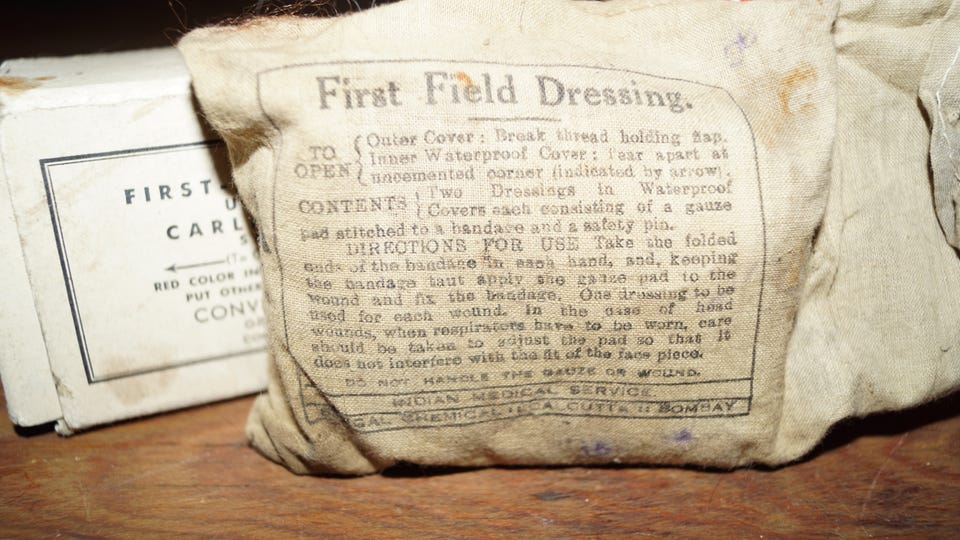 First Field Dressing.
TO OPEN { Outer Cover: Break thread holding flap.
Inner Waterproof Cover: Tear apart at
uncemented corner (indicated by arrow).
CONTENTS { Two Dressings in Waterproof
Covers each consisting of a gauze
pad stitched to a bandage and a safety pin.
DIRECTIONS FOR USE Take the folded
ends of the bandage in each hand, and, keeping
the bandage taut apply the gauze pad to the
wound and fix the bandage. One dressing to be
used for each wound. In the case of head
wounds, when respirators have to be worn, care
should be taken to adjust the pad so that it
does not interfere with the fit of the face piece.
DO NOT HANDLE THE GAUZE OR WOUND.
INDIAN MEDICAL SERVICE.
GAL CHEMICAL :: CUTTA :: BOMBAY
FIRST-
U
CARL
S
(To
RED COLOR IN
PUT OTHE
CONV